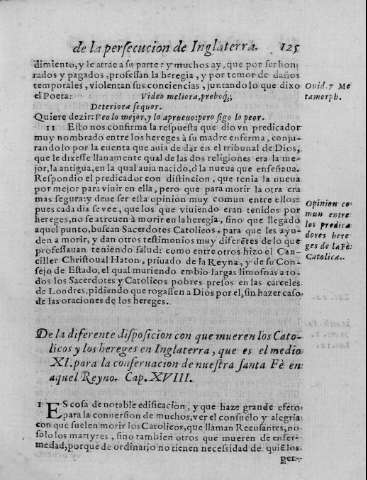 de la persecucion de Inglaterra. 125
dimiento, y le atrae a su parte: y muchos ay, que por ser hon
rados y pagados, professan la heregia, y por temor de daños
temporales, violentan sus conciencias, juntando lo que dixo
el Poeta: Video meliora, probóq;
Deteriora sequor.
Quiere dezir: Veo lo mejor, y lo aprueuo: pero sigo lo peor.
Ouid. 7 Me
tamorph.
11 Esto nos confirma la respuesta que dio vn predicador
muy nombrado entre los hereges à su madre enferma, conju-
randolo por la cuenta que auia de dar en el tribunal de Dios,
que le dixesse llanamente qual de las dos religiones era la me-
jor, la antigua, en la qual auia nacido, ò la nueua que enseñaua.
Respondio el predicador con distincion, que tenia la nueua
por mejor para viuir en ella, pero que para morir la otra era
mas segura: y deue ser esta opinion muy comun entre ellos:
pues cada dia se vee, que los que viuiendo eran tenidos por
hereges, no se atreuen à morir en la heregia, sino que llegado
aquel punto, buscan Sacerdotes Catolicos, para que les ayu-
den a morir, y dan otros testimonios muy diferētes de lo que
professauan teniendo salud: como entre otros hizo el Can-
ciller Christoual Haton, priuado de la Reyna, y de su Con-
sejo de Estado, el qual muriendo embio largas limosnas a to-
dos los Sacerdotes y Catolicos pobres presos en las carceles
de Londres, pidiendo que rogassen a Dios por el, sin hazer caso
de las oraciones de los hereges.
Opinion co
mun entre
los predica
dores here
ges de la Fè
Catolica.
De la diferente disposicion con que mueren los Cato-
licos y los hereges en Inglaterra, que es el medio
XI. para la conseruacion de nuestra santa Fè en
aquel Reyno. Cap. XVIII.
1 ES cosa de notable edificacion, y que haze grande efeto
para la conuersion de muchos, ver el consuelo y alegria
con que suelen morir los Catolicos, que llaman Recusantes, no
solo los martyres, sino tambien otros que mueren de enfer-
medad, porque de ordinario no tienen necessidad de quiē los
per-